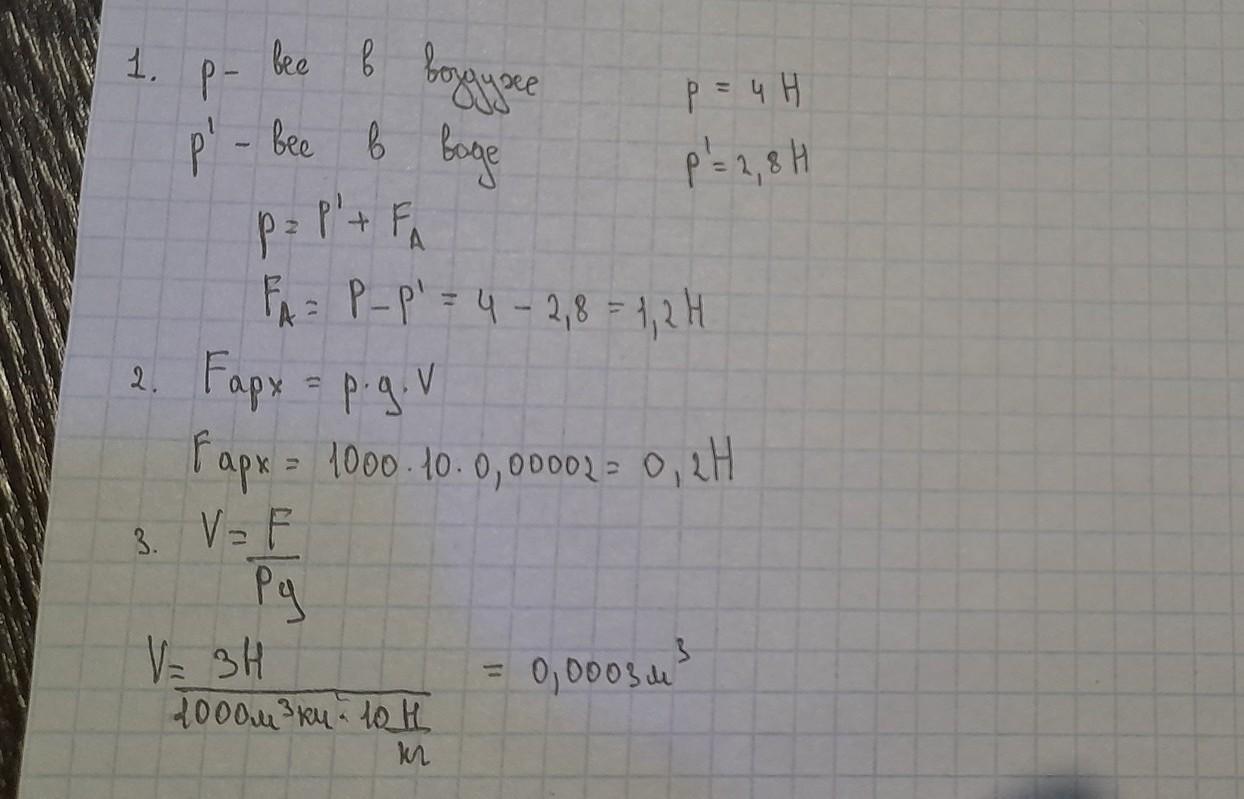 1. p - вес в воздухе p = 4 Н
p' - вес в воде p' = 2,8 Н
p = p' + F_A
F_A = P - p' = 4 - 2,8 = 1,2 Н
2. Fарх = p · g · V
Fарх = 1000 · 10 · 0,00002 = 0,2 Н
3. V = F
Pg
V = 3Н = 0,0003 м³
1000 м³ кг · 10 Н
кг